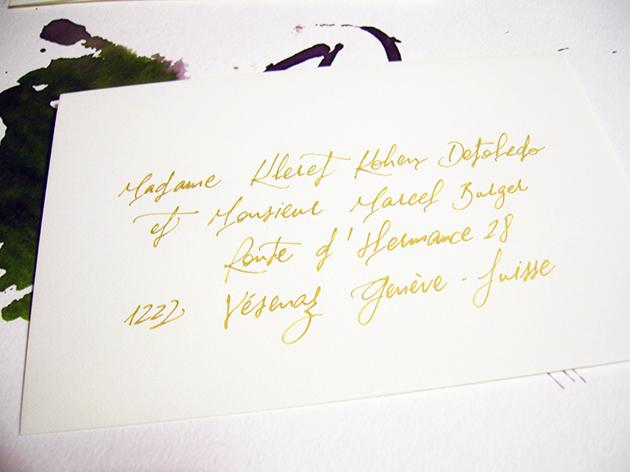 Madame Kleref Kohen Detoledo
et Monsieur Marcel Burger
Route d'Hermance 28
1222 Vésenaz Genève - Suisse